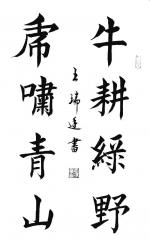 牛耕綠野
虎嘯青山
王瑞廷書